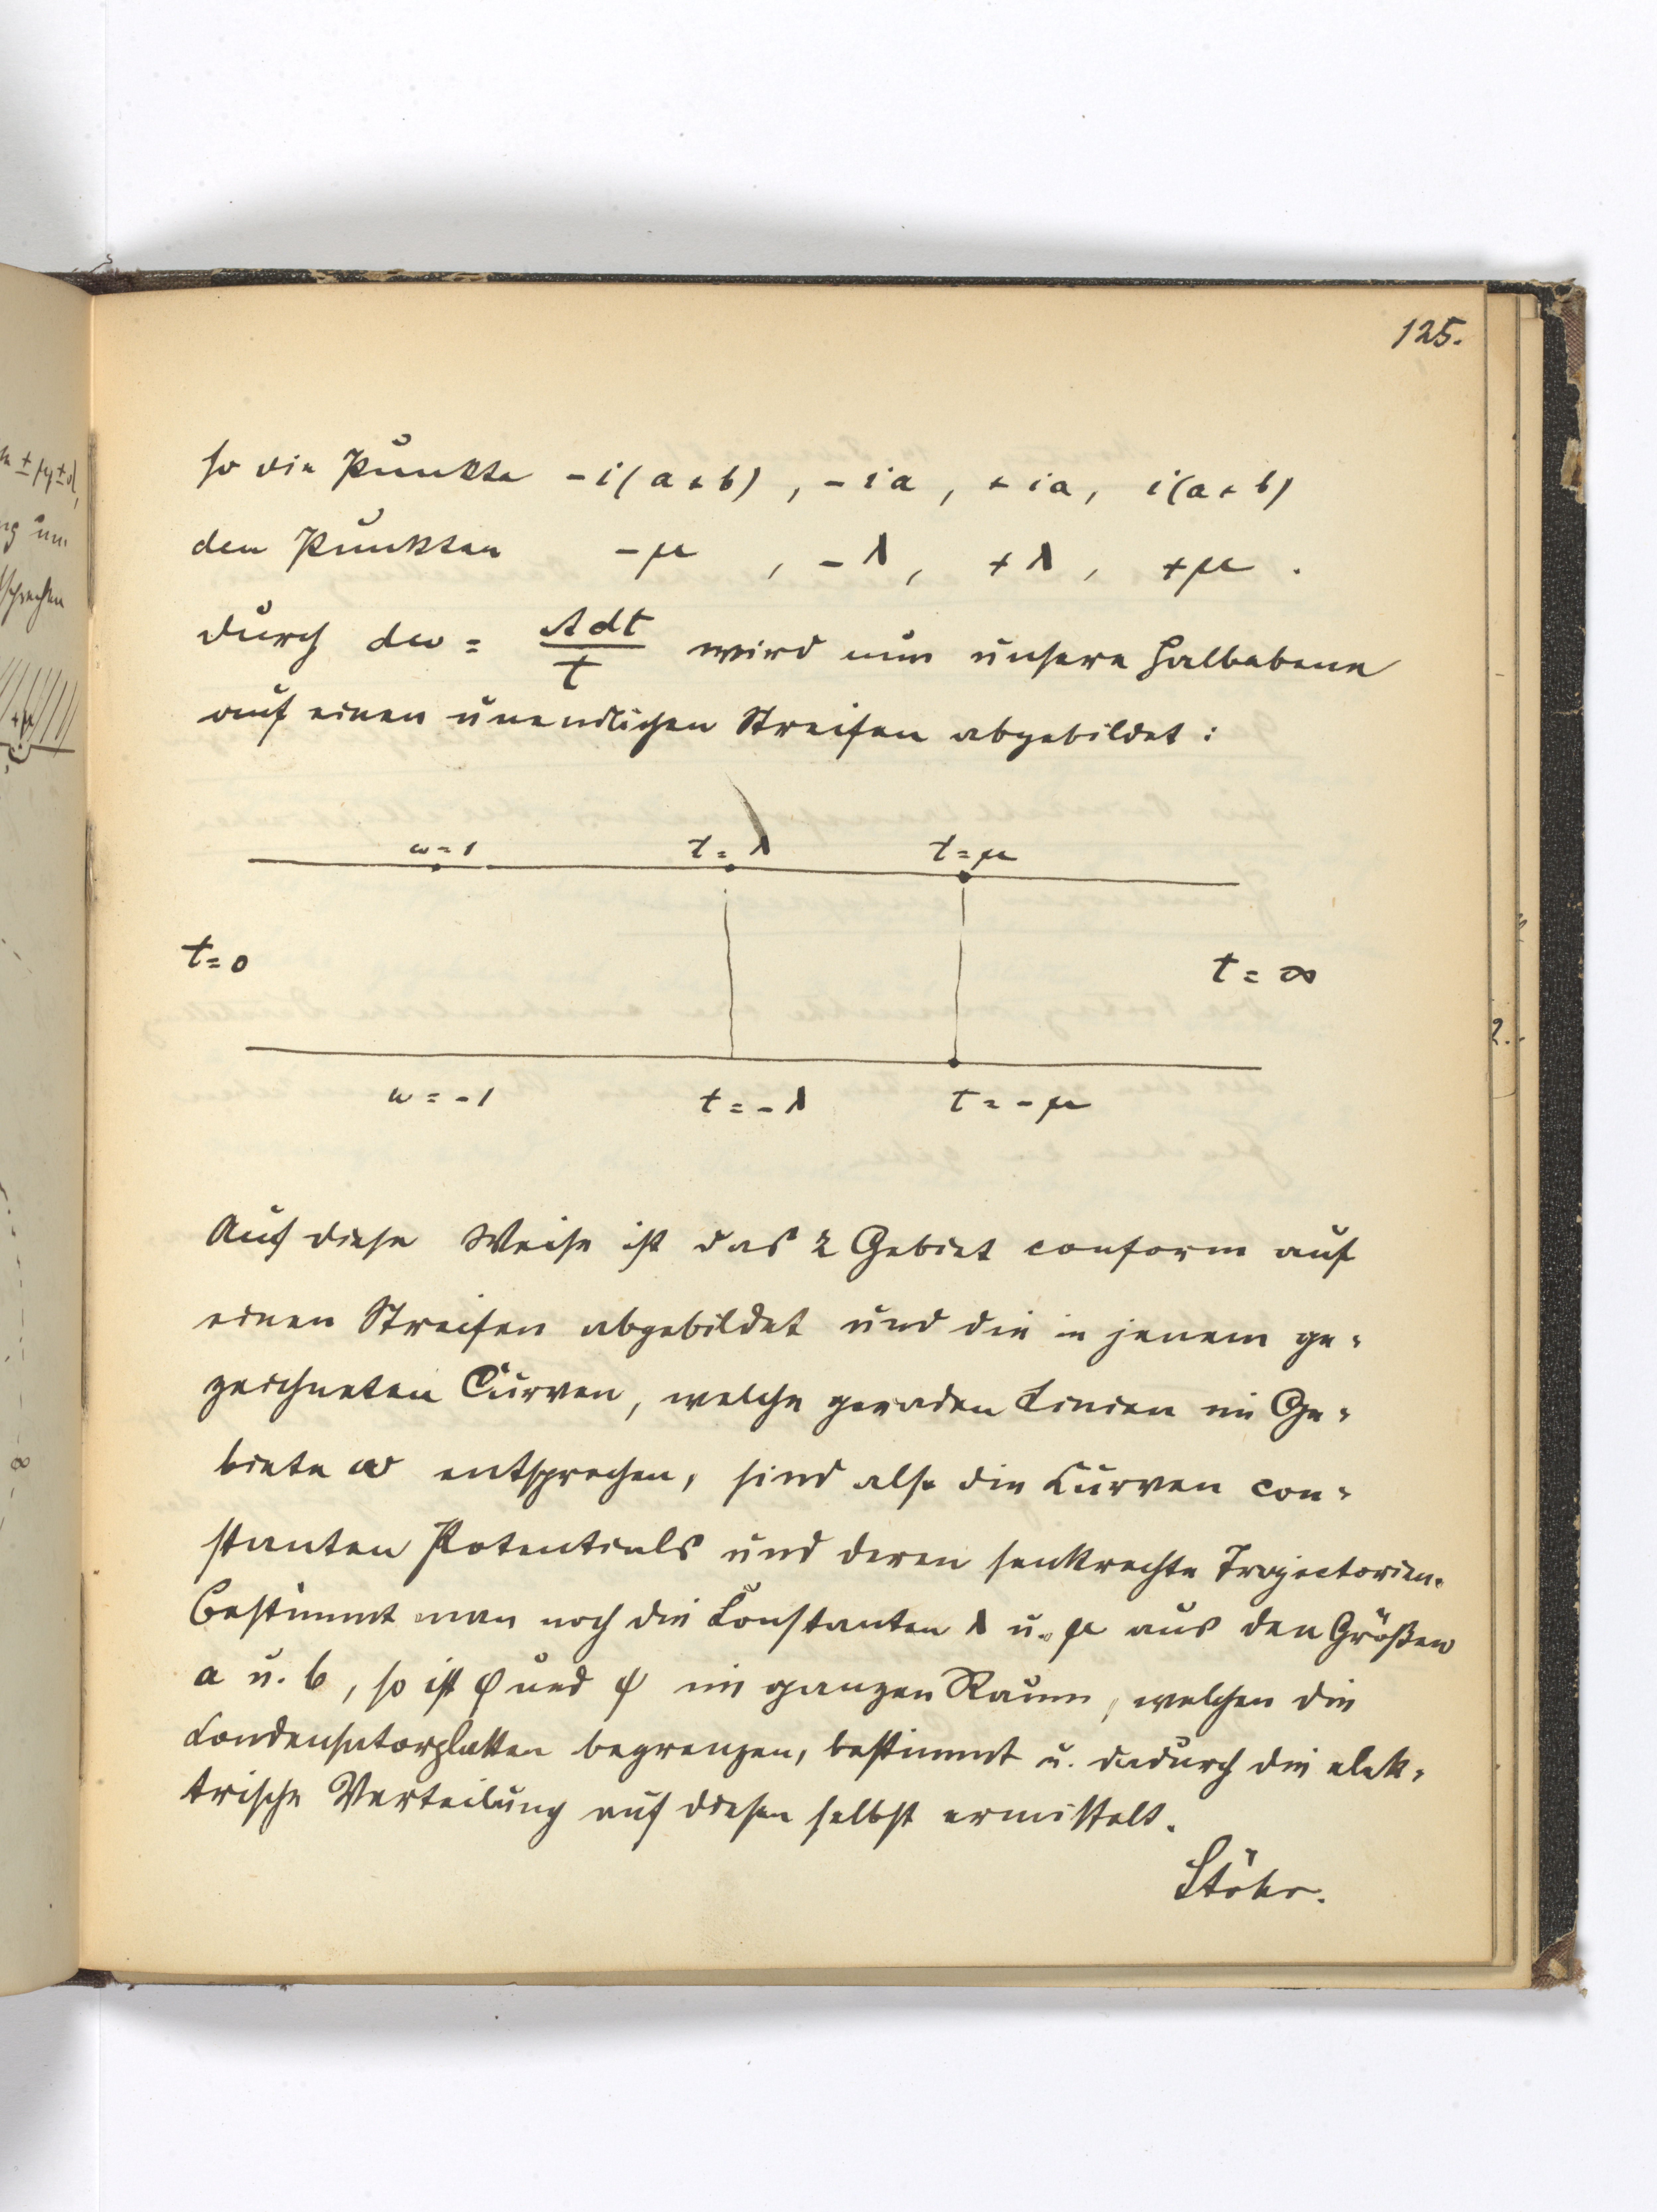 125.
so die Punkte -i(a+b), -ia, +ia, i(a+b)
den Punkten -μ, -λ, +λ, +μ.
Durch dω = A dt / t wird nun unsere Halbebene
auf einen unendlichen Streifen abgebildet:
ω=1 t=λ t=μ
t=0 t=∞
ω=-1 t=-λ t=-μ
Auf diese Weise ist das z Gebiet conform auf
einen Streifen abgebildet und die in jenem ge-
zeichneten Curven, welche geraden Linien im Ge-
biete ω entsprechen, sind also die Curven con-
stanten Potentials und deren senkrechte Trajectorien.
Bestimmt man noch die Constanten λ u. μ aus den Größen
a u. b, so ist φ und ψ im ganzen Raum, welchen die
Condensatorplatten begrenzen, bestimmt u. dadurch die elek-
trische Verteilung auf diesen selbst ermittelt.
Stöhr.
2.